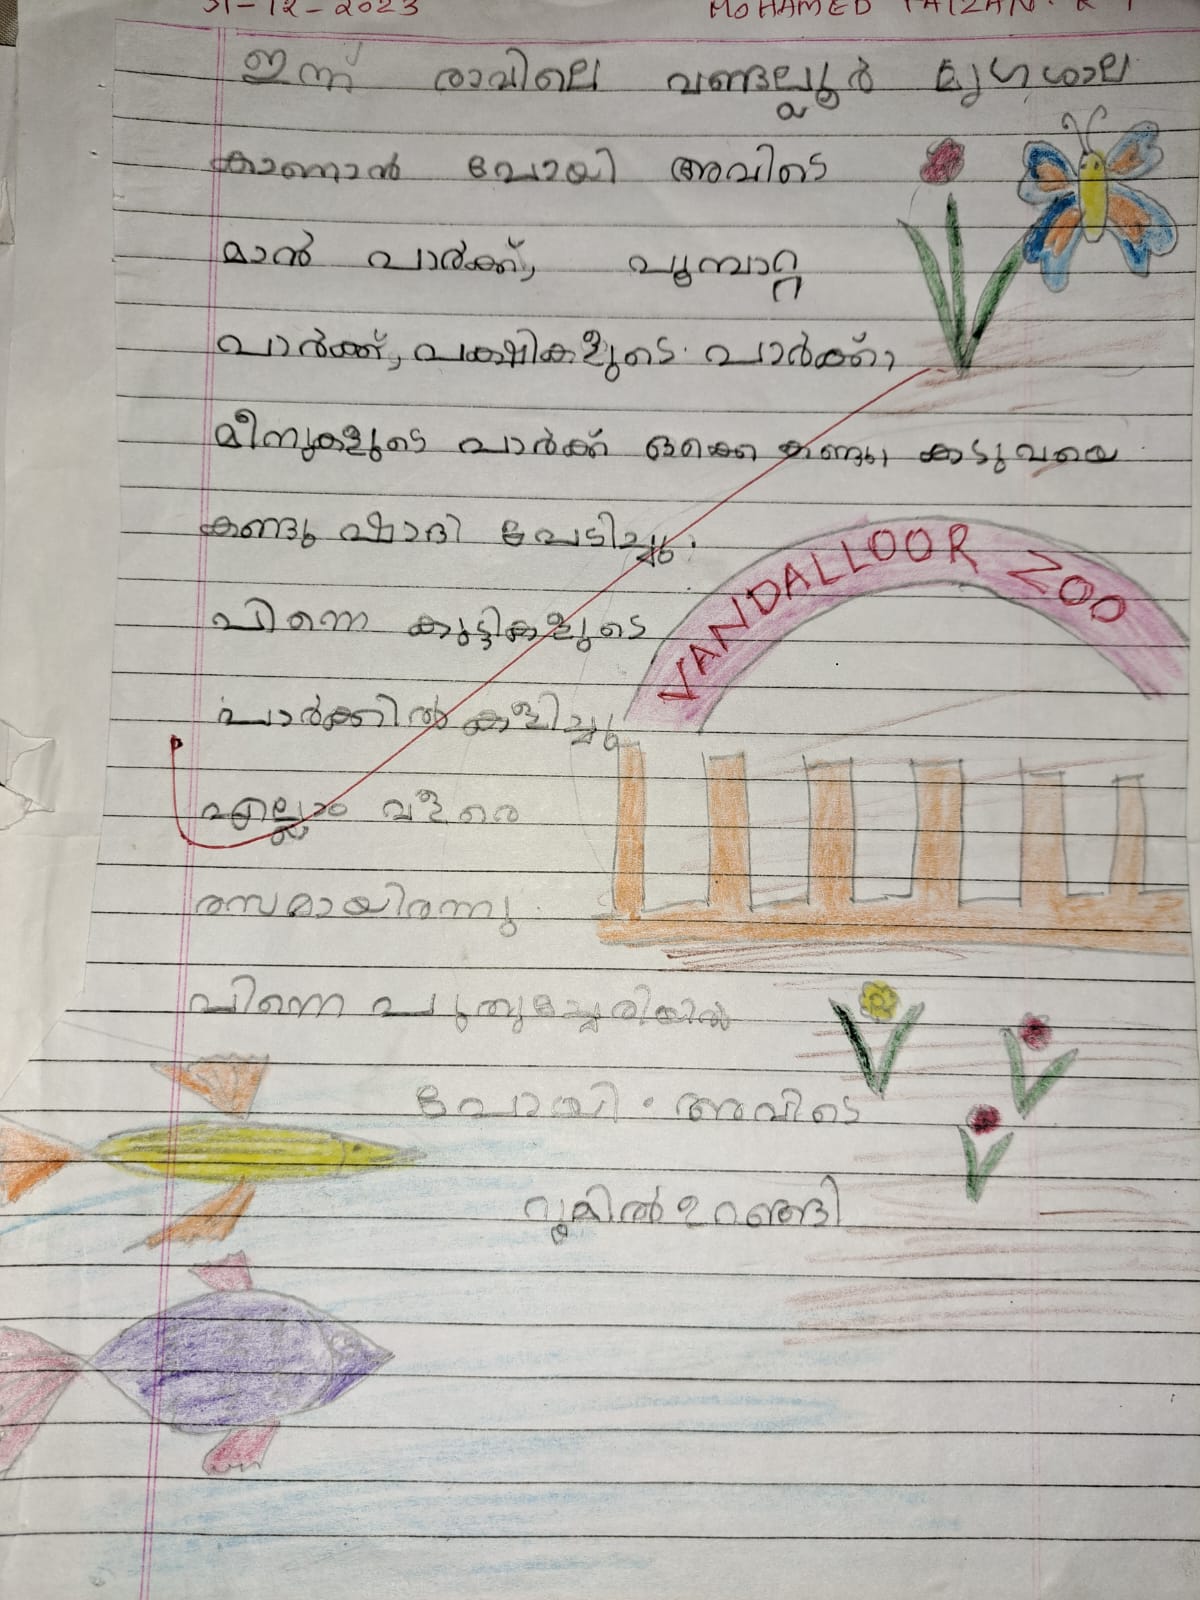 31-12-2023 MOHAMED FAIZAN. K
ഇന്ന് രാവിലെ വണ്ടല്ലൂർ മൃഗശാല
കാണാൻ പോയി അവിടെ
മാൻ പാർക്ക്, പൂമ്പാറ്റ
പാർക്ക്, പക്ഷികളുടെ പാർക്ക്,
മീനുകളുടെ പാർക്ക് ഒക്കെ കണ്ടു, കടുവയെ
കണ്ടു ഷാദി പേടിച്ചു.
പിന്നെ കുട്ടികളുടെ
പാർക്കിൽ കളിച്ചു
എല്ലാം വളരെ
രസമായിരന്നു.
പിന്നെ പുതുച്ചേരിയിൽ
പോയി. അവിടെ
റൂമിൽ ഉറങ്ങി
VANDALLOOR ZOO